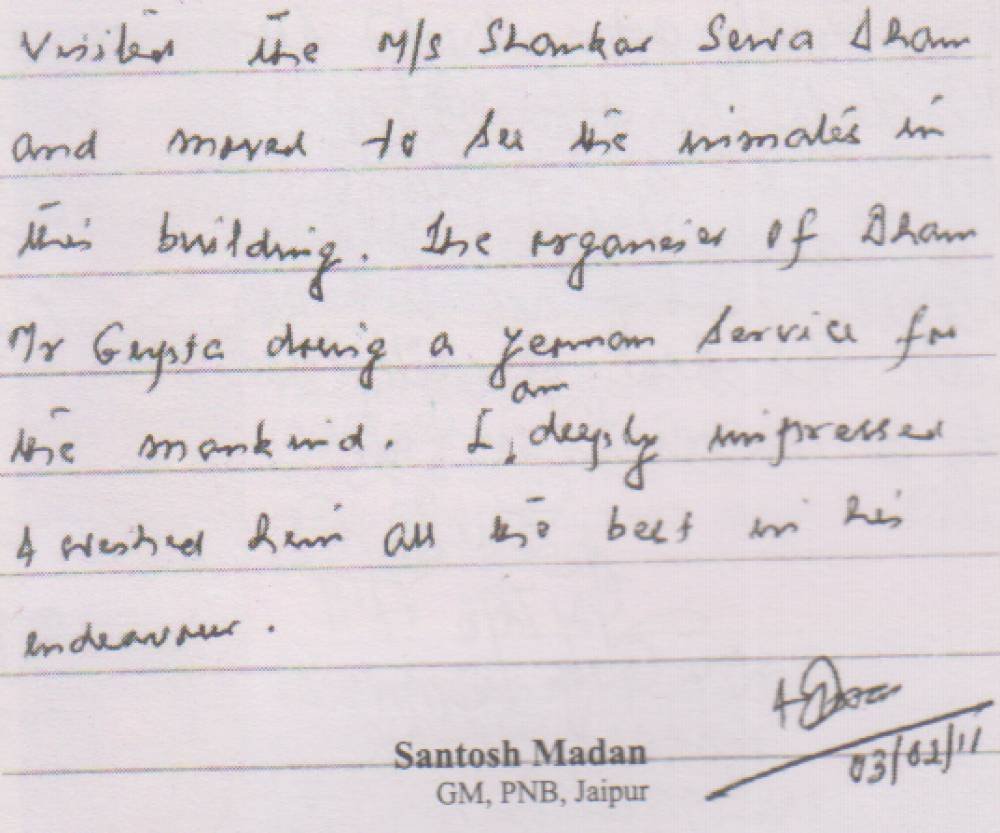 Visited the M/S Shankar Sewa Dham
and moved to see the inmates in
this building. The organiser of Dham
Mr Gupta doing a yeoman service for
the mankind. I am deeply impressed
& wished him all the best in his
endeavour.
03/02/11
Santosh Madan
GM, PNB, Jaipur